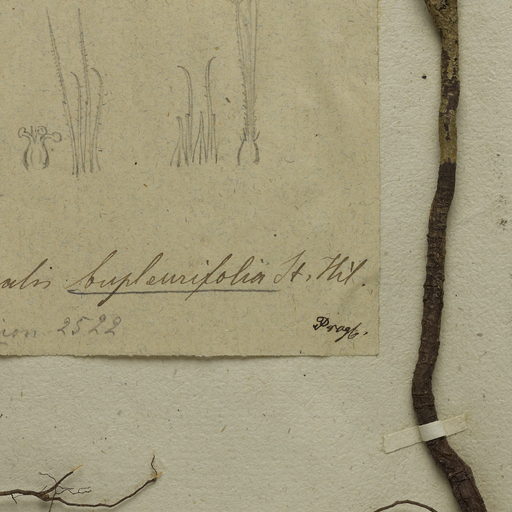 alis bupleurifolia St. Hil.
ion 2522
Pragb.